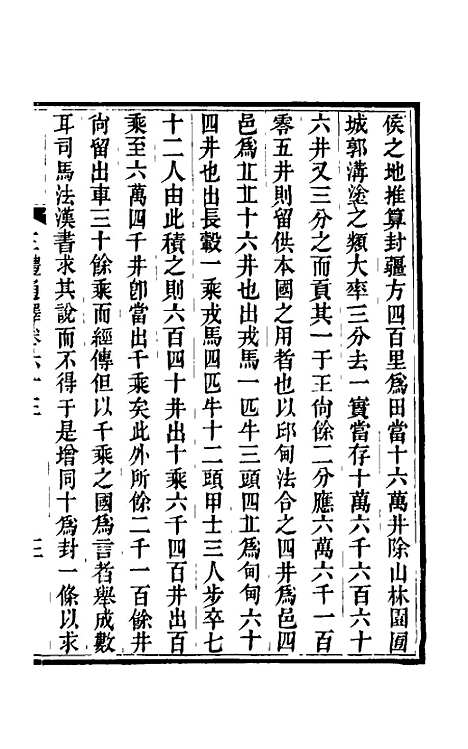 侯之地推算封疆方四百里爲田當十六萬井除山林園囿
城郭溝塗之類大率三分去一實當存十萬六千六百六十
六井又三分之而貢其一于王尙餘二分應六萬六千一百
零五井則留供本國之用者也以邱甸法合之四井爲邑四
邑爲㐀㐀十六井也出戎馬一匹牛三頭四㐀爲甸甸六十
四井也出長轂一乘戎馬四匹牛十二頭甲士三人步卒七
十二人由此積之則六百四十井出十乘六千四百井出百
乘至六萬四千井卽當出千乘矣此外所餘二千一百餘井
尙留出車三十餘乘而經傳但以千乘之國爲言者舉成數
耳司馬法漢書求其說而不得于是增同十爲封一條以求
三禮通釋卷六十三 三